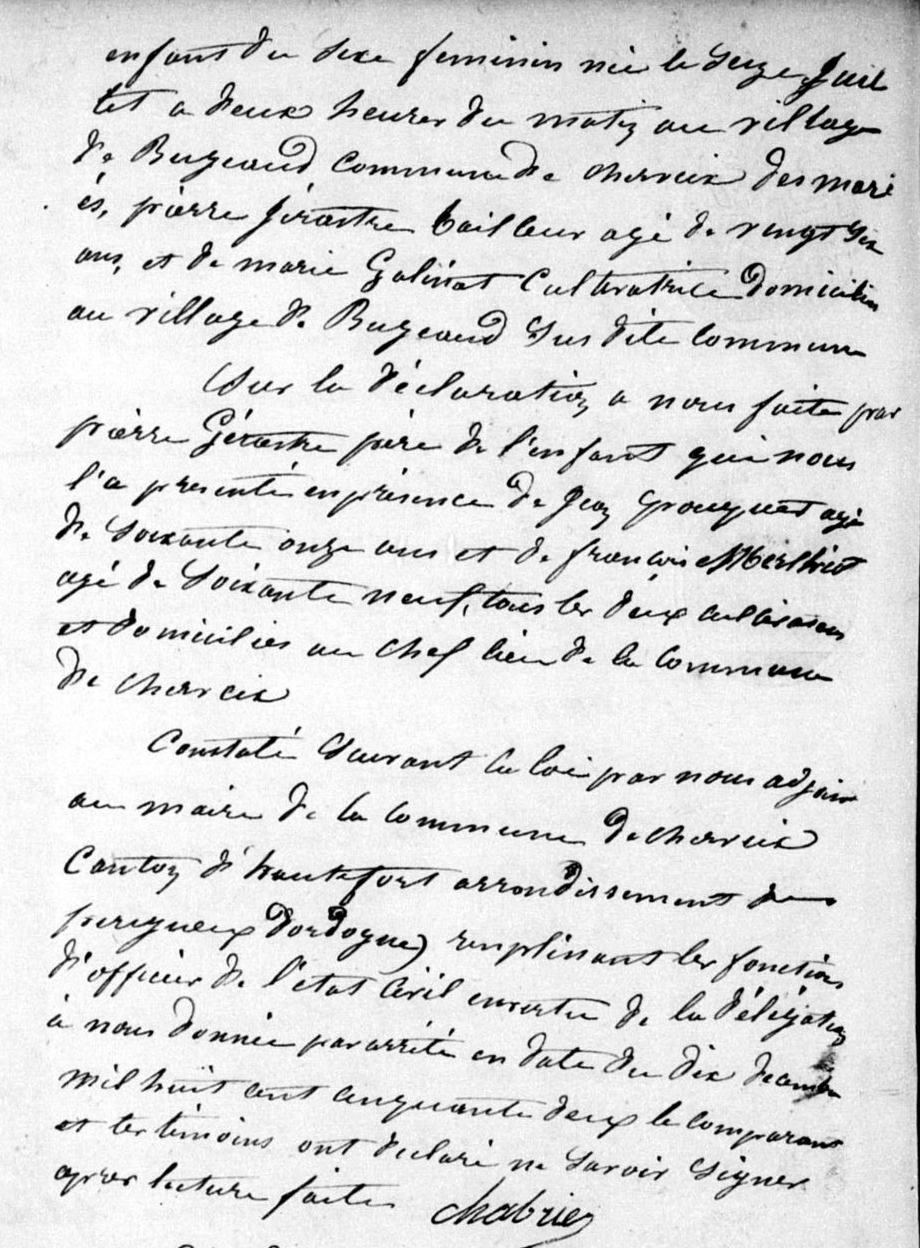 enfant du sexe feminin née le seize Juil
let a deux heures du matin au village
de Bugeaud commune de cherveix des mari
és, pierre Gérastre tailleur agé de vingt six
ans, et de marie Galinat Cultivatrice domiciliés
au village de Bugeaud Sus dite commune
Sur la déclaration a nous faite par
pierre Gérastre père de l'enfant qui nous
l'a presenté en présence de Jean Pouquet agé
de Soixante onze ans et de francois
agé de Soixante neuf, tous les deux cultivateurs
et domiciliés au chef lieu de la commune
de cherveix
Constaté Suivant la loi par nous adjoint
au maire de la commune de cherveix
Canton d'hautefort arrondissement de
perigueux dordogne) remplissant les fonctions
d'officier de l'état Civil en vertu de la délégation
à nous donnée par arrêté en date du dix decembre
mil huit cent cinquante deux le comparant
et les témoins ont declaré ne Savoir Signer
après lecture faite chabrier